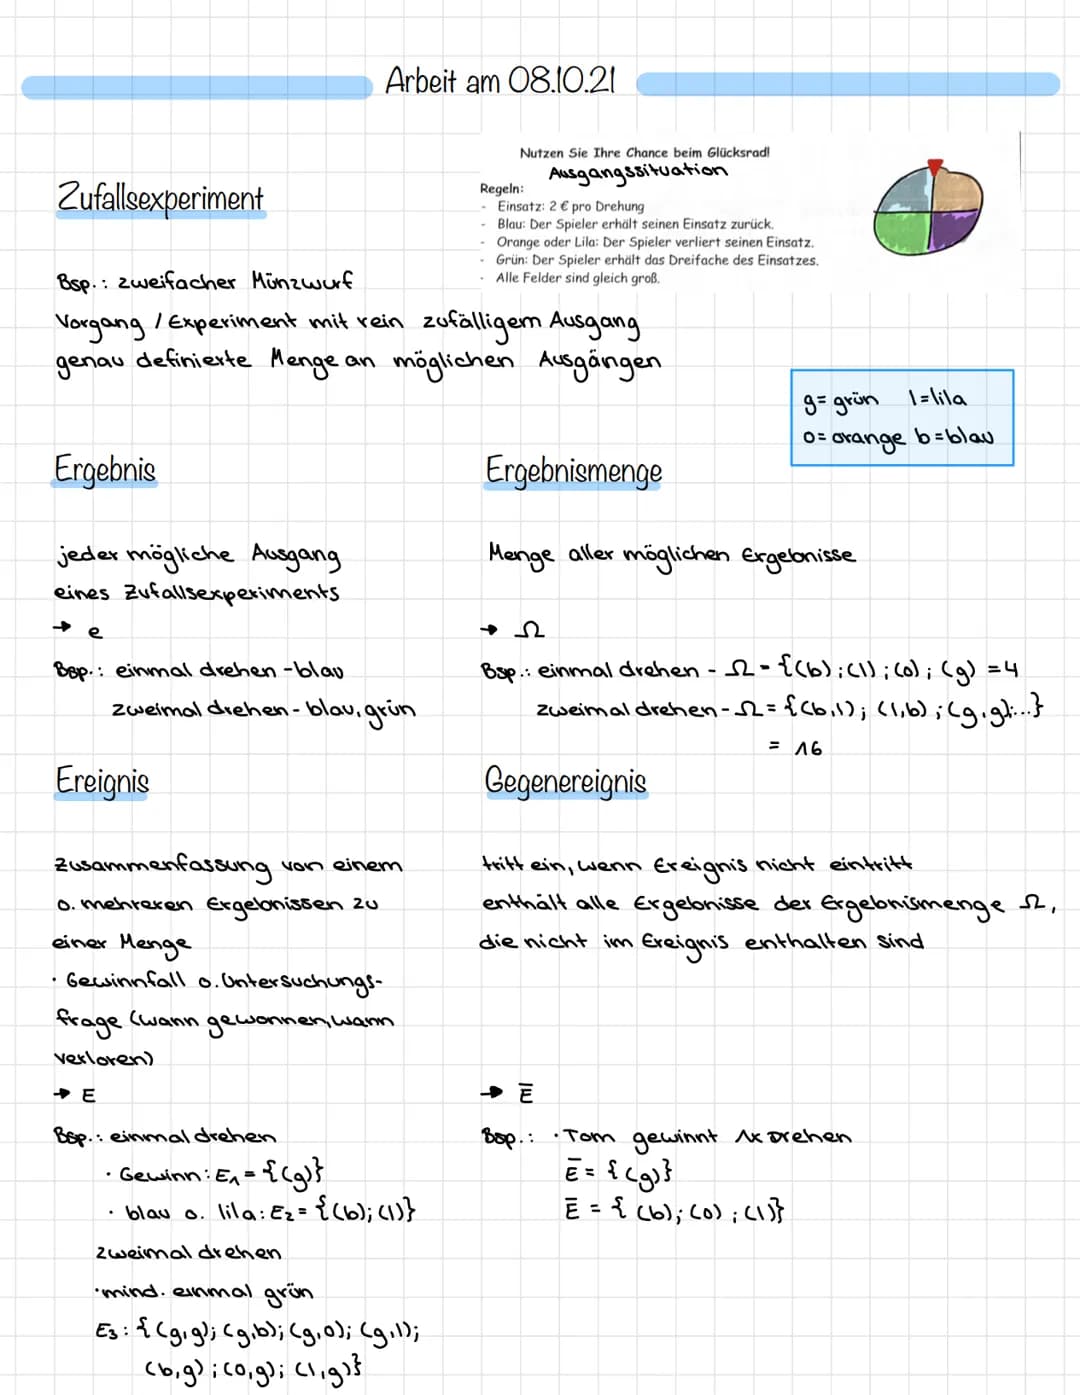 Arbeit am 08.10.21
Nutzen Sie Ihre Chance beim Glücksrad!
Ausgangssituation
Regeln:
- Einsatz: 2 € pro Drehung
- Blau: Der Spieler erhält seinen Einsatz zurück.
- Orange oder Lila: Der Spieler verliert seinen Einsatz.
- Grün: Der Spieler erhält das Dreifache des Einsatzes.
- Alle Felder sind gleich groß.
Zufallsexperiment
Bsp.: zweifacher Münzwurf
Vorgang / Experiment mit rein zufälligem Ausgang
genau definierte Menge an möglichen Ausgängen
g= grün l=lila
o= orange b=blau
Ergebnis
jeder mögliche Ausgang
eines Zufallsexperiments
→ e
Bsp.: einmal drehen - blau
zweimal drehen - blau, grün
Ergebnismenge
Menge aller möglichen Ergebnisse
→ Ω
Bsp.: einmal drehen - Ω = {(b);(l);(o);(g) = 4
zweimal drehen - Ω = {(b,l); (l,b);(g,g);...}
= 16
Ereignis
Zusammenfassung von einem
o. mehreren Ergebnissen zu
einer Menge
· Gewinnfall o. Untersuchungs-
frage (wann gewonnen, wann
verloren)
→ E
Bsp.: einmal drehen
· Gewinn: E₁ = {(g)}
· blau o. lila: E₂ = {(b);(l)}
zweimal drehen
· mind. einmal grün
E₃: {(g,g);(g,b);(g,o);(g,l);
(b,g);(o,g);(l,g)}
Gegenereignis
tritt ein, wenn Ereignis nicht eintritt
enthält alle Ergebnisse der Ergebnismenge Ω,
die nicht im Ereignis enthalten sind
→ Ē
Bsp.: · Tom gewinnt 1x Drehen
Ē = {(g)}
Ē = {(b);(o);(l)}